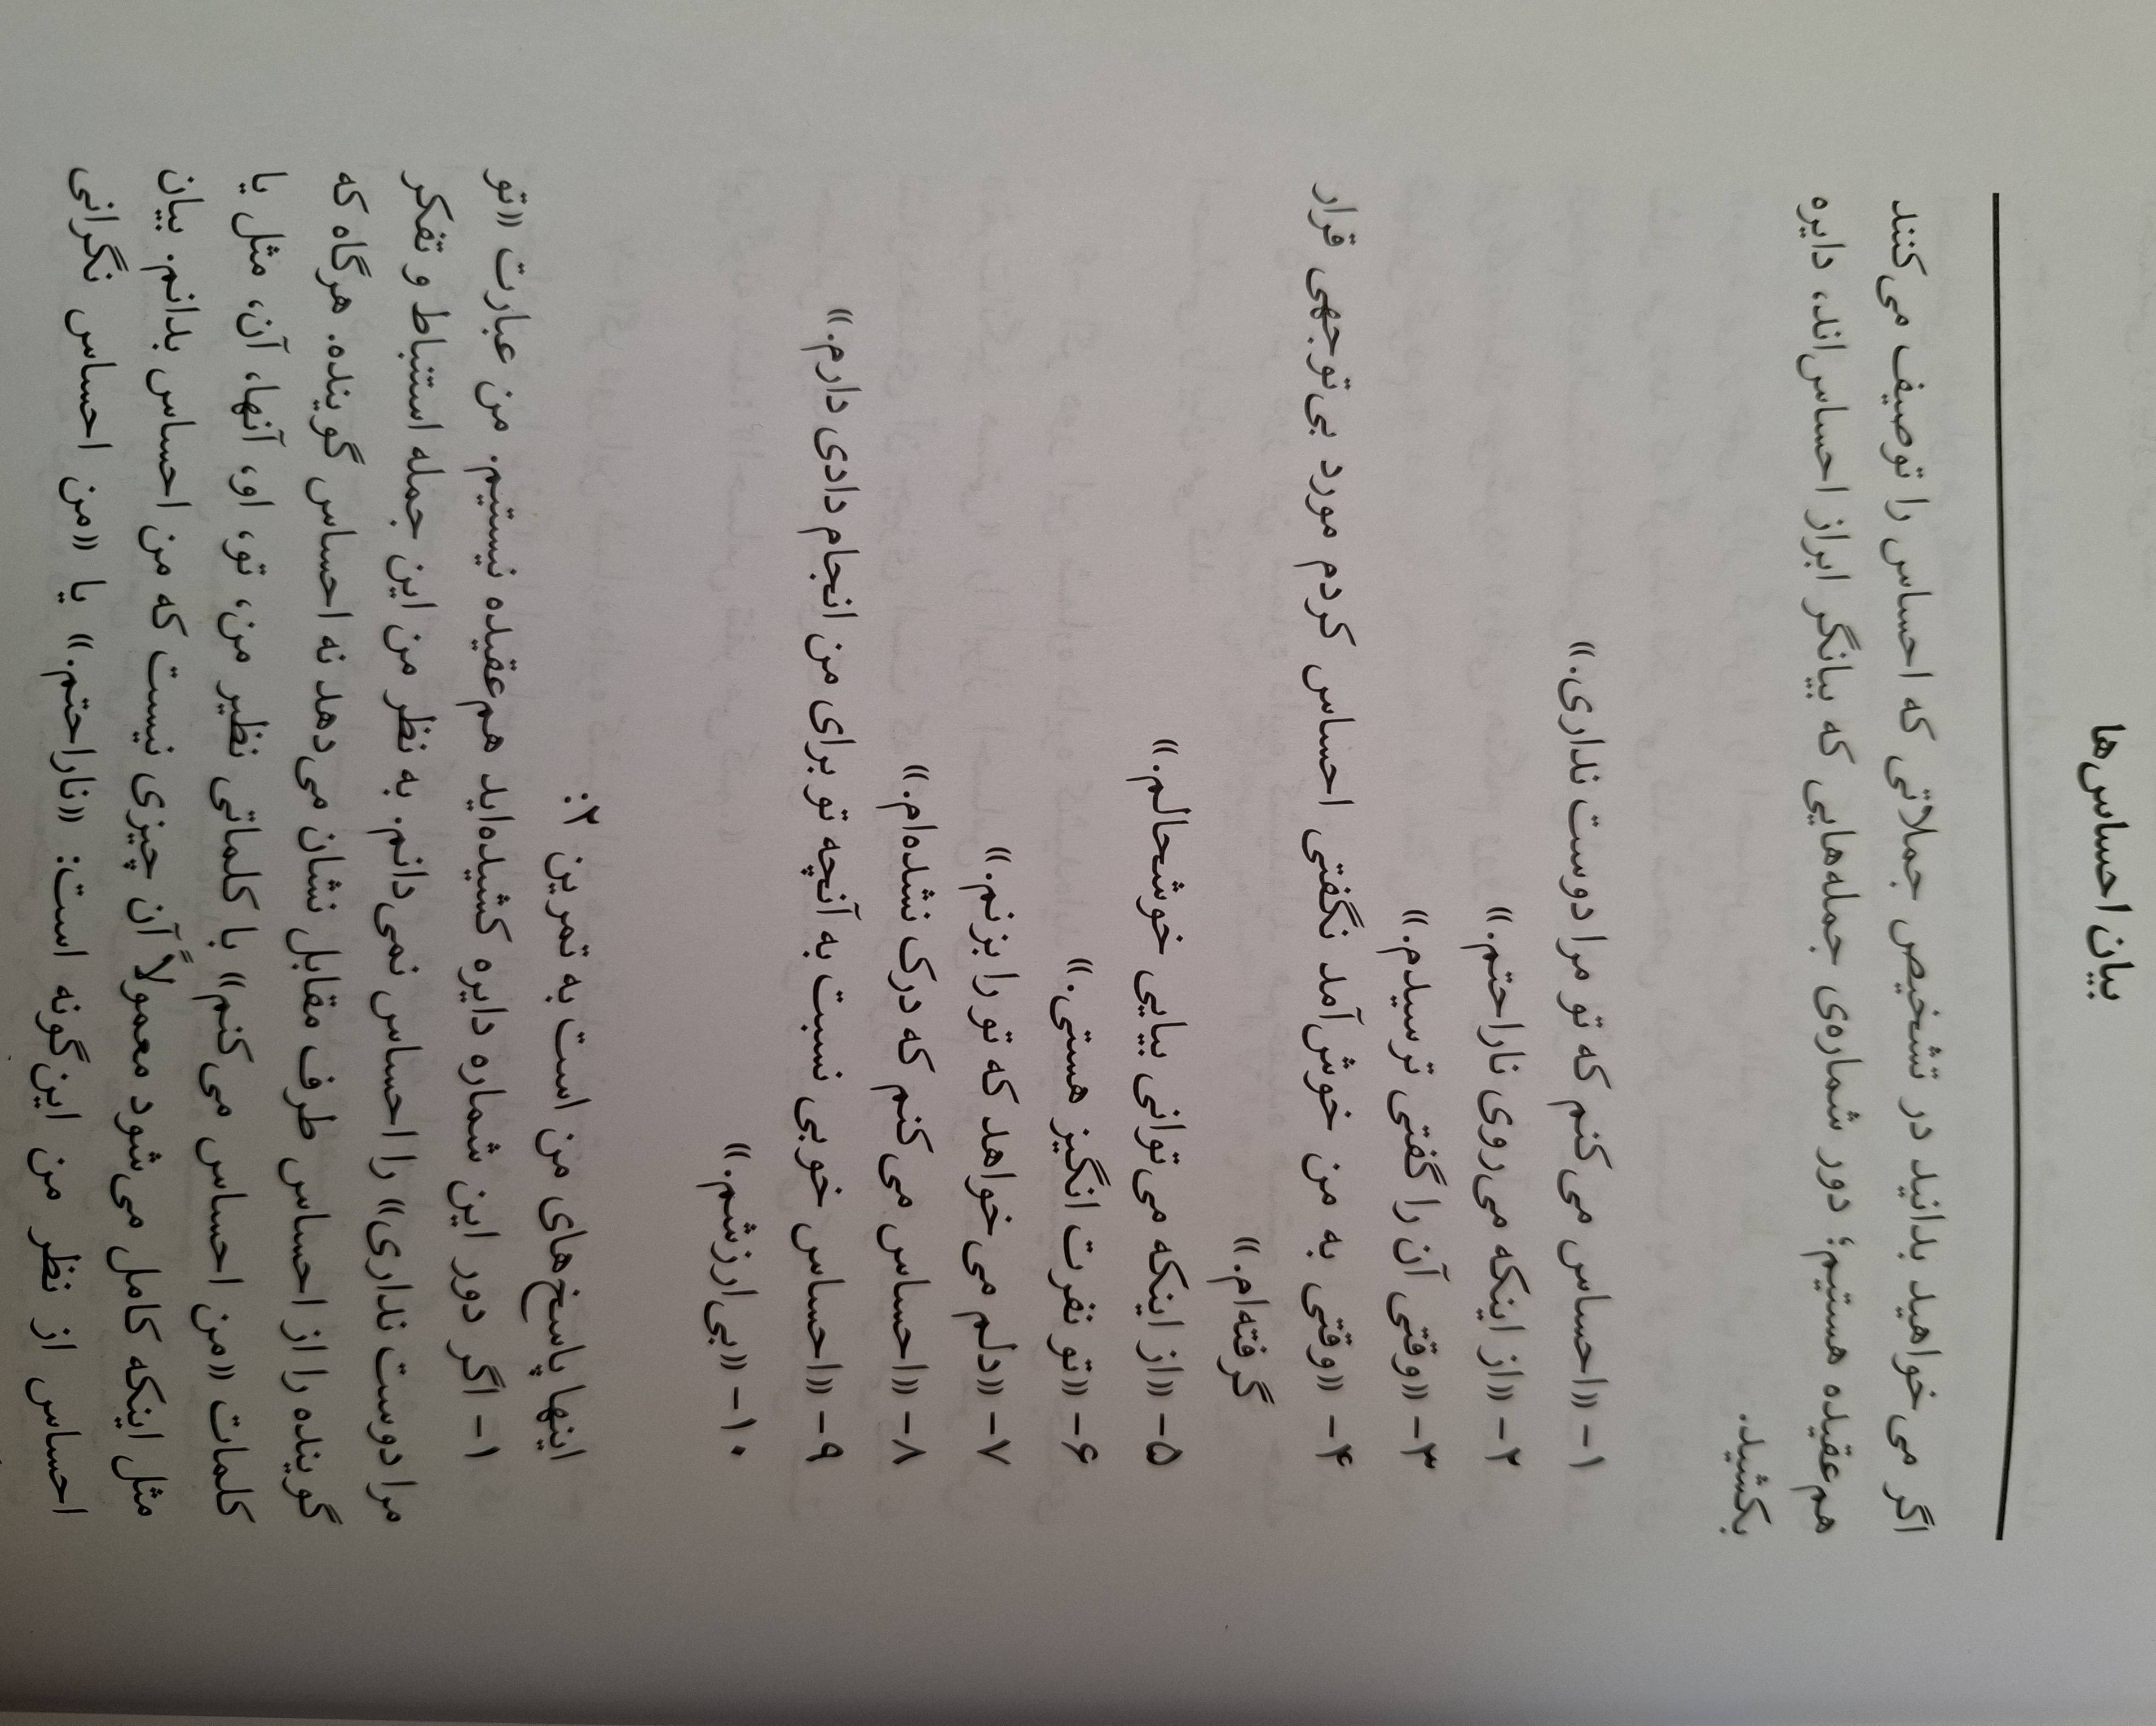 بیان احساس‌ها
اگر می‌خواهید بدانید در تشخیص جملاتی که احساس را توصیف می‌کنند
هم‌عقیده هستیم؛ دور شماره‌ی جمله‌هایی که بیانگر ابراز احساس‌اند، دایره
بکشید.
۱- «احساس می‌کنم که تو مرا دوست نداری.»
۲- «از اینکه می‌روی ناراحتم.»
۳- «وقتی آن را گفتی ترسیدم.»
۴- «وقتی به من خوش‌آمد نگفتی احساس کردم مورد بی‌توجهی قرار
گرفته‌ام.»
۵- «از اینکه می‌توانی بیایی خوشحالم.»
۶- «تو نفرت انگیز هستی.»
۷- «دلم می‌خواهد که تو را بزنم.»
۸- «احساس می‌کنم که درک نشده‌ام.»
۹- «احساس خوبی نسبت به آنچه تو برای من انجام دادی دارم.»
۱۰- «بی‌ارزشم.»
اینها پاسخ‌های من است به تمرین ۲:
۱- اگر دور این شماره دایره کشیده‌اید هم‌عقیده نیستیم. من عبارت «تو
مرا دوست نداری» را احساس نمی‌دانم. به نظر من این جمله استنباط و تفکر
گوینده را از احساس طرف مقابل نشان می‌دهد نه احساس گوینده. هرگاه که
کلمات «من احساس می‌کنم» با کلماتی نظیر من، تو، او، آنها، آن، مثل یا
مثل اینکه کامل می‌شود معمولاً آن چیزی نیست که من احساس بدانم. بیان
احساس از نظر من این‌گونه است: «ناراحتم.» یا «من احساس نگرانی